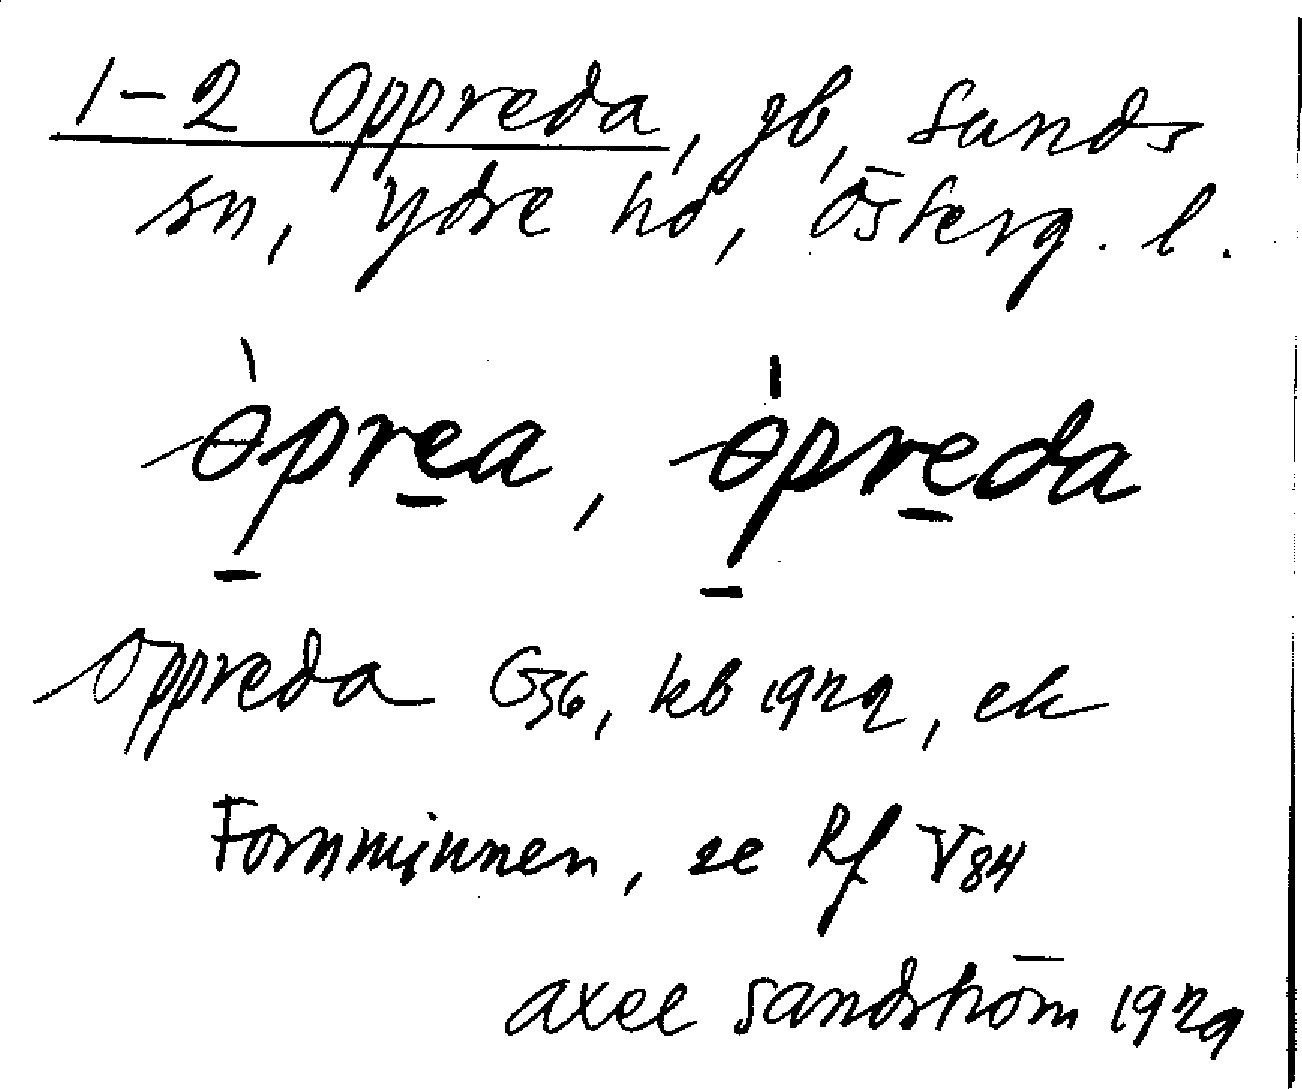 1-2 Oppreda, gb, Sunds
sn, Ydre hd, Österg. l.
òprea, òpreda
Oppreda G36, kb 1929, ek
Fornminnen, se Rf V84
Axel Sandström 1929